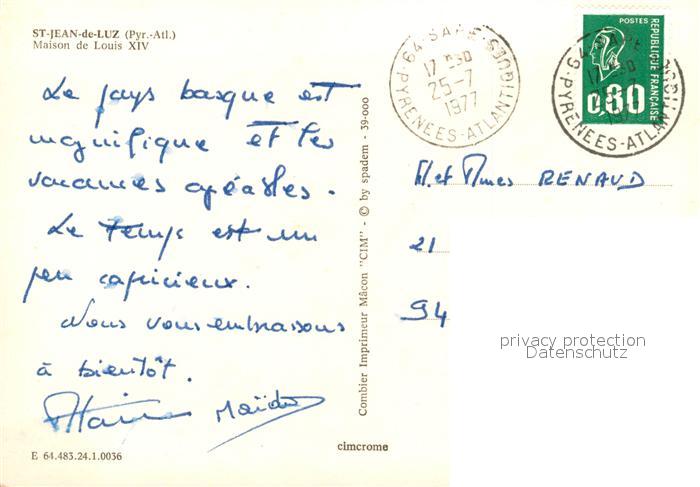 ST-JEAN-de-LUZ (Pyr.-Atl.)
Maison de Louis XIV
Le pays basque est
magnifique et les
vacances agréables.
Le temps est un
peu capricieux.
Nous vous embrassons
à bientôt.
Maïder
E 64.483.24.1.0036
cimcrome
Combier Imprimeur Mâcon "CIM" - © by spadem - 39-000
64-SARE
17 H30
25-7
1977
PYRENEES-ATLANTIQUES
POSTES
REPUBLIQUE FRANÇAISE
0,80
64-SARE
17 H30
25-7
1977
PYRENEES-ATLANTIQUES
M. et Mmes RENAUD
21
94
privacy protection
Datenschutz